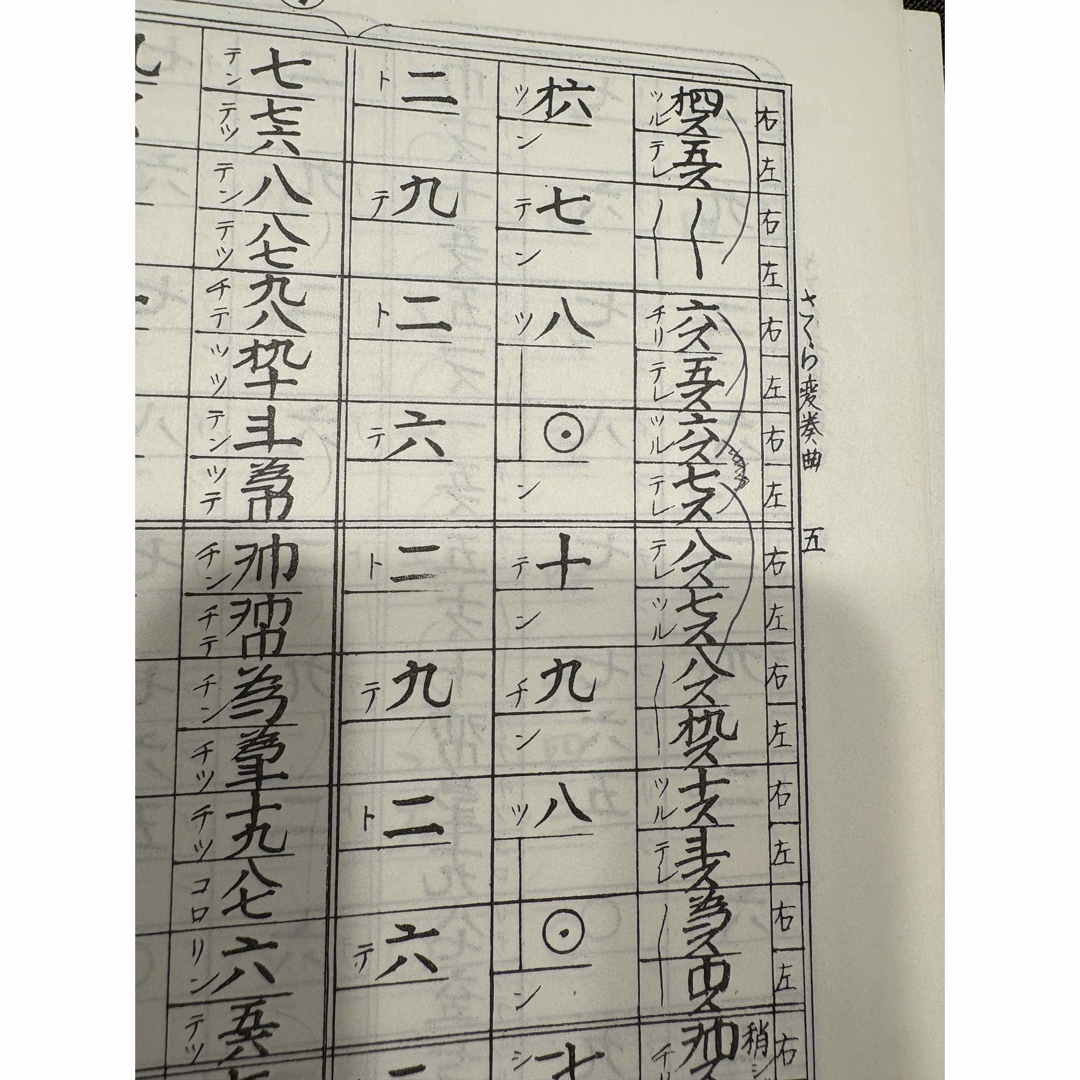 さくら変奏曲 五
右 左 右 左 右 左 右 左 右 左 右 左 右 左 右 左 右
ツル 四ス
テレ 五ス
チリ 六ス
テレ 五ス
ツル 六ス
テレ 七ス
テレ 八ス
ツル 七ス
八ス
九ス
ツル 十ス
テレ 斗ス
為ス
巾ス
チ 巾 稍
ツ 六
ン
テ 七
ン
ツ 八
⊙
ン
テ 十
ン
チ 九
ン
ツ 八
⊙
ン
シ 七
ト 二
テ 九
ト 二
テ 六
ト 二
テ 九
ト 二
テ 六
二
テン 七
テツ 七六
テン 八
テツ 八七
チテ 九八
ツツ 九十
テン 斗
ツテ 為巾
チン 巾
チテ 巾巾
チン 為
チツ 為斗
チツ 十九
コロ 八七
リン 六
テツ 五六